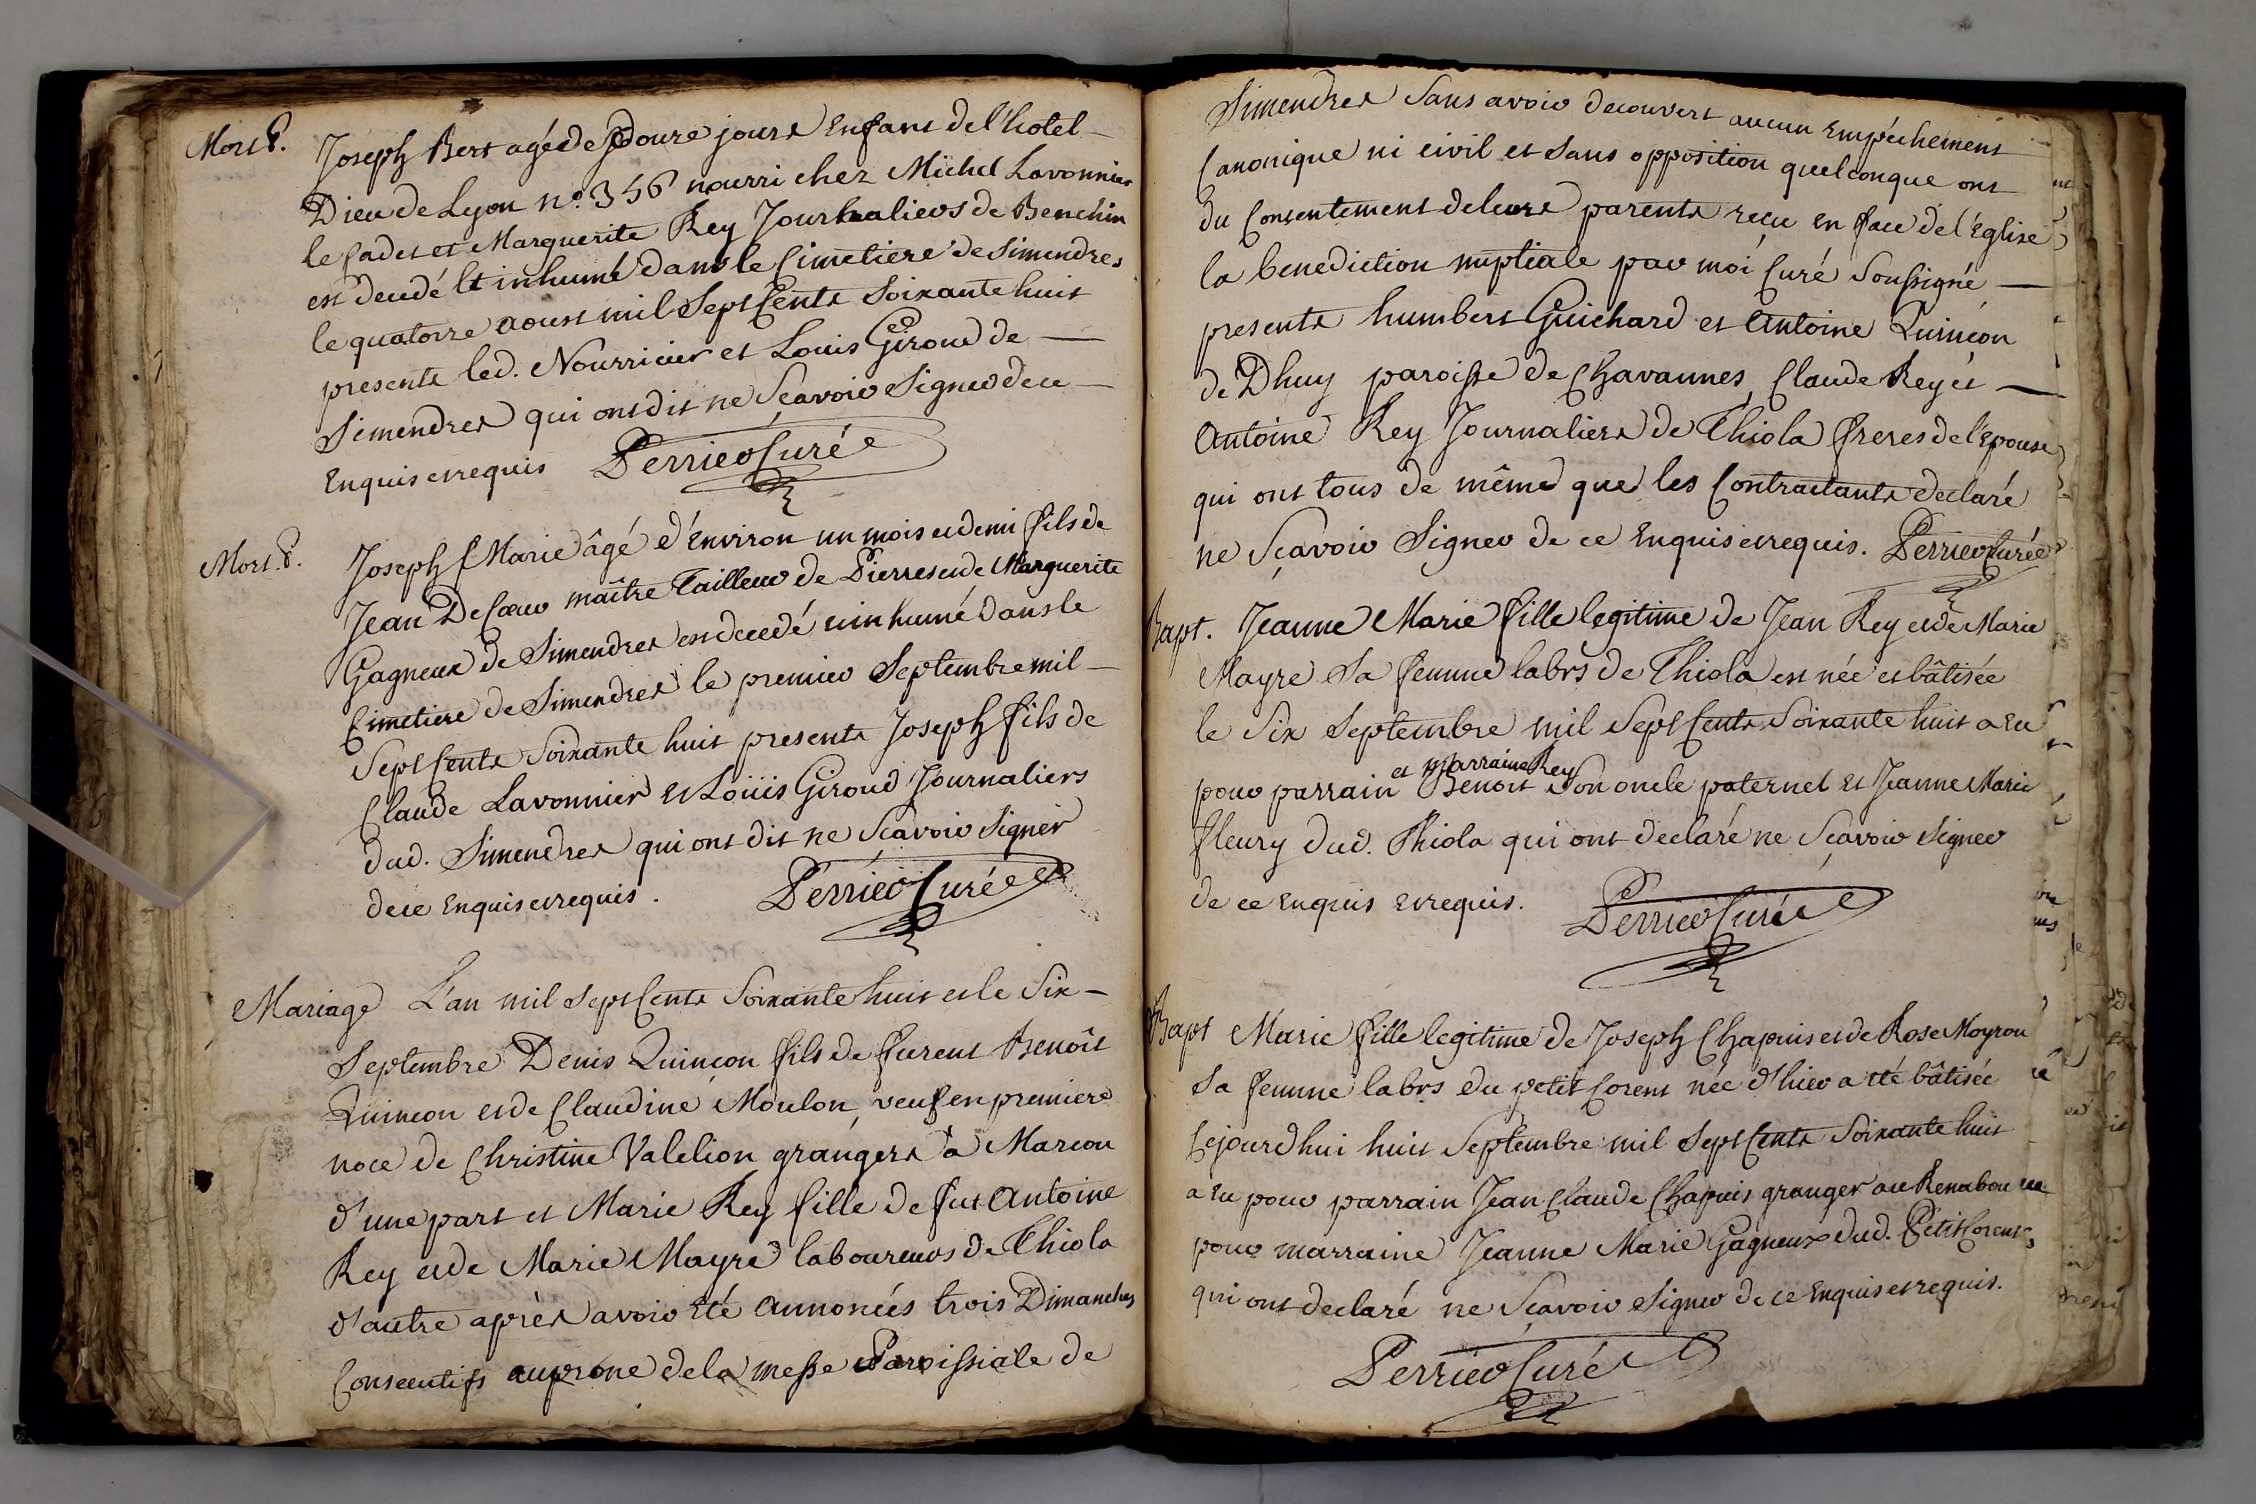 Mort P. Joseph Bert agé de douze jours Enfant de l'hotel
Dieu de Lyon n.o 356 nourri chez Michel Lavonnier
le Cadet et Marguerite Rey Journaliers de Benchin
est decedé et inhumé dans le Cimetiere de Simendres
le quatorze aoust mil Sept Cents Soixante huit
presents led. Nourricier et Louis Giroud de
Simendres qui ont dit ne Scavoir Signer de ce
Enquis et requis Perrier Curé
Mort. P. Joseph Marie âgé d'Environ un mois et demi fils de
Jean DeCœur maître Tailleur de Pierres et de Marguerite
Gagneux de Simendres est decedé et inhumé dans le
Cimetiere de Simendres le premier Septembre mil
Sept Cents Soixante huit presents Joseph fils de
Claude Lavonnier et Loüis Giroud Journaliers
dud. Simendres qui ont dit ne Scavoir Signer
de ce Enquis et requis. Perrier Curé
Mariage L'an mil Sept Cents Soixante huit et le Six
Septembre Denis Quinçon fils de furent Benoît
Quinçon et de Claudine Moulon, veuf en premiere
noce de Christine Valelion grangers à Marcou
d'une part et Marie Rey fille de fut Antoine
Rey et de Marie Mayre laboureurs de Thiola
d'autre après avoir été annoncés trois Dimanches
Consecutifs au prône de la messe Paroissiale de
Simendres Sans avoir decouvert aucun Empêchement
Canonique ni civil et Sans opposition quelconque ont
du Consentement de leurs parents reçu en face de l'Eglise
la benediction nuptiale par moi Curé Soussigné
presents humbert Guichard et Antoine Quinçon
de Dhuy paroisse de Chavannes, Claude Rey et
Antoine Rey Journaliers de Thiola freres de l'Epouse
qui ont tous de même que les Contractants declaré
ne Sçavoir Signer de ce Enquis et requis. Perrier Curé
Bapt. Jeanne Marie fille legitime de Jean Rey et de Marie
Mayre Sa femme labrs de Thiola est née et bâtisée
le Six Septembre mil Sept Cents Soixante huit a Eu
et marraine Rey
pour parrain Benoit Son oncle paternel et Jeanne Marie
fleury dud. Thiola qui ont declaré ne Sçavoir Signer
de ce Enquis et requis. Perrier Curé
Bapt Marie fille legitime de Joseph Chapuis et de Rose Moyron
Sa femme labrs du petit Corent née d'hier a été bâtisée
Cejourdhui huit Septembre mil Sept Cents Soixante huit
a Eu pour parrain Jean Claude Chapuis granger au Renabou
pour marraine Jeanne Marie Gagneux dud. Petit Corent,
qui ont declaré ne Sçavoir Signer de ce Enquis et requis.
Perrier Curé